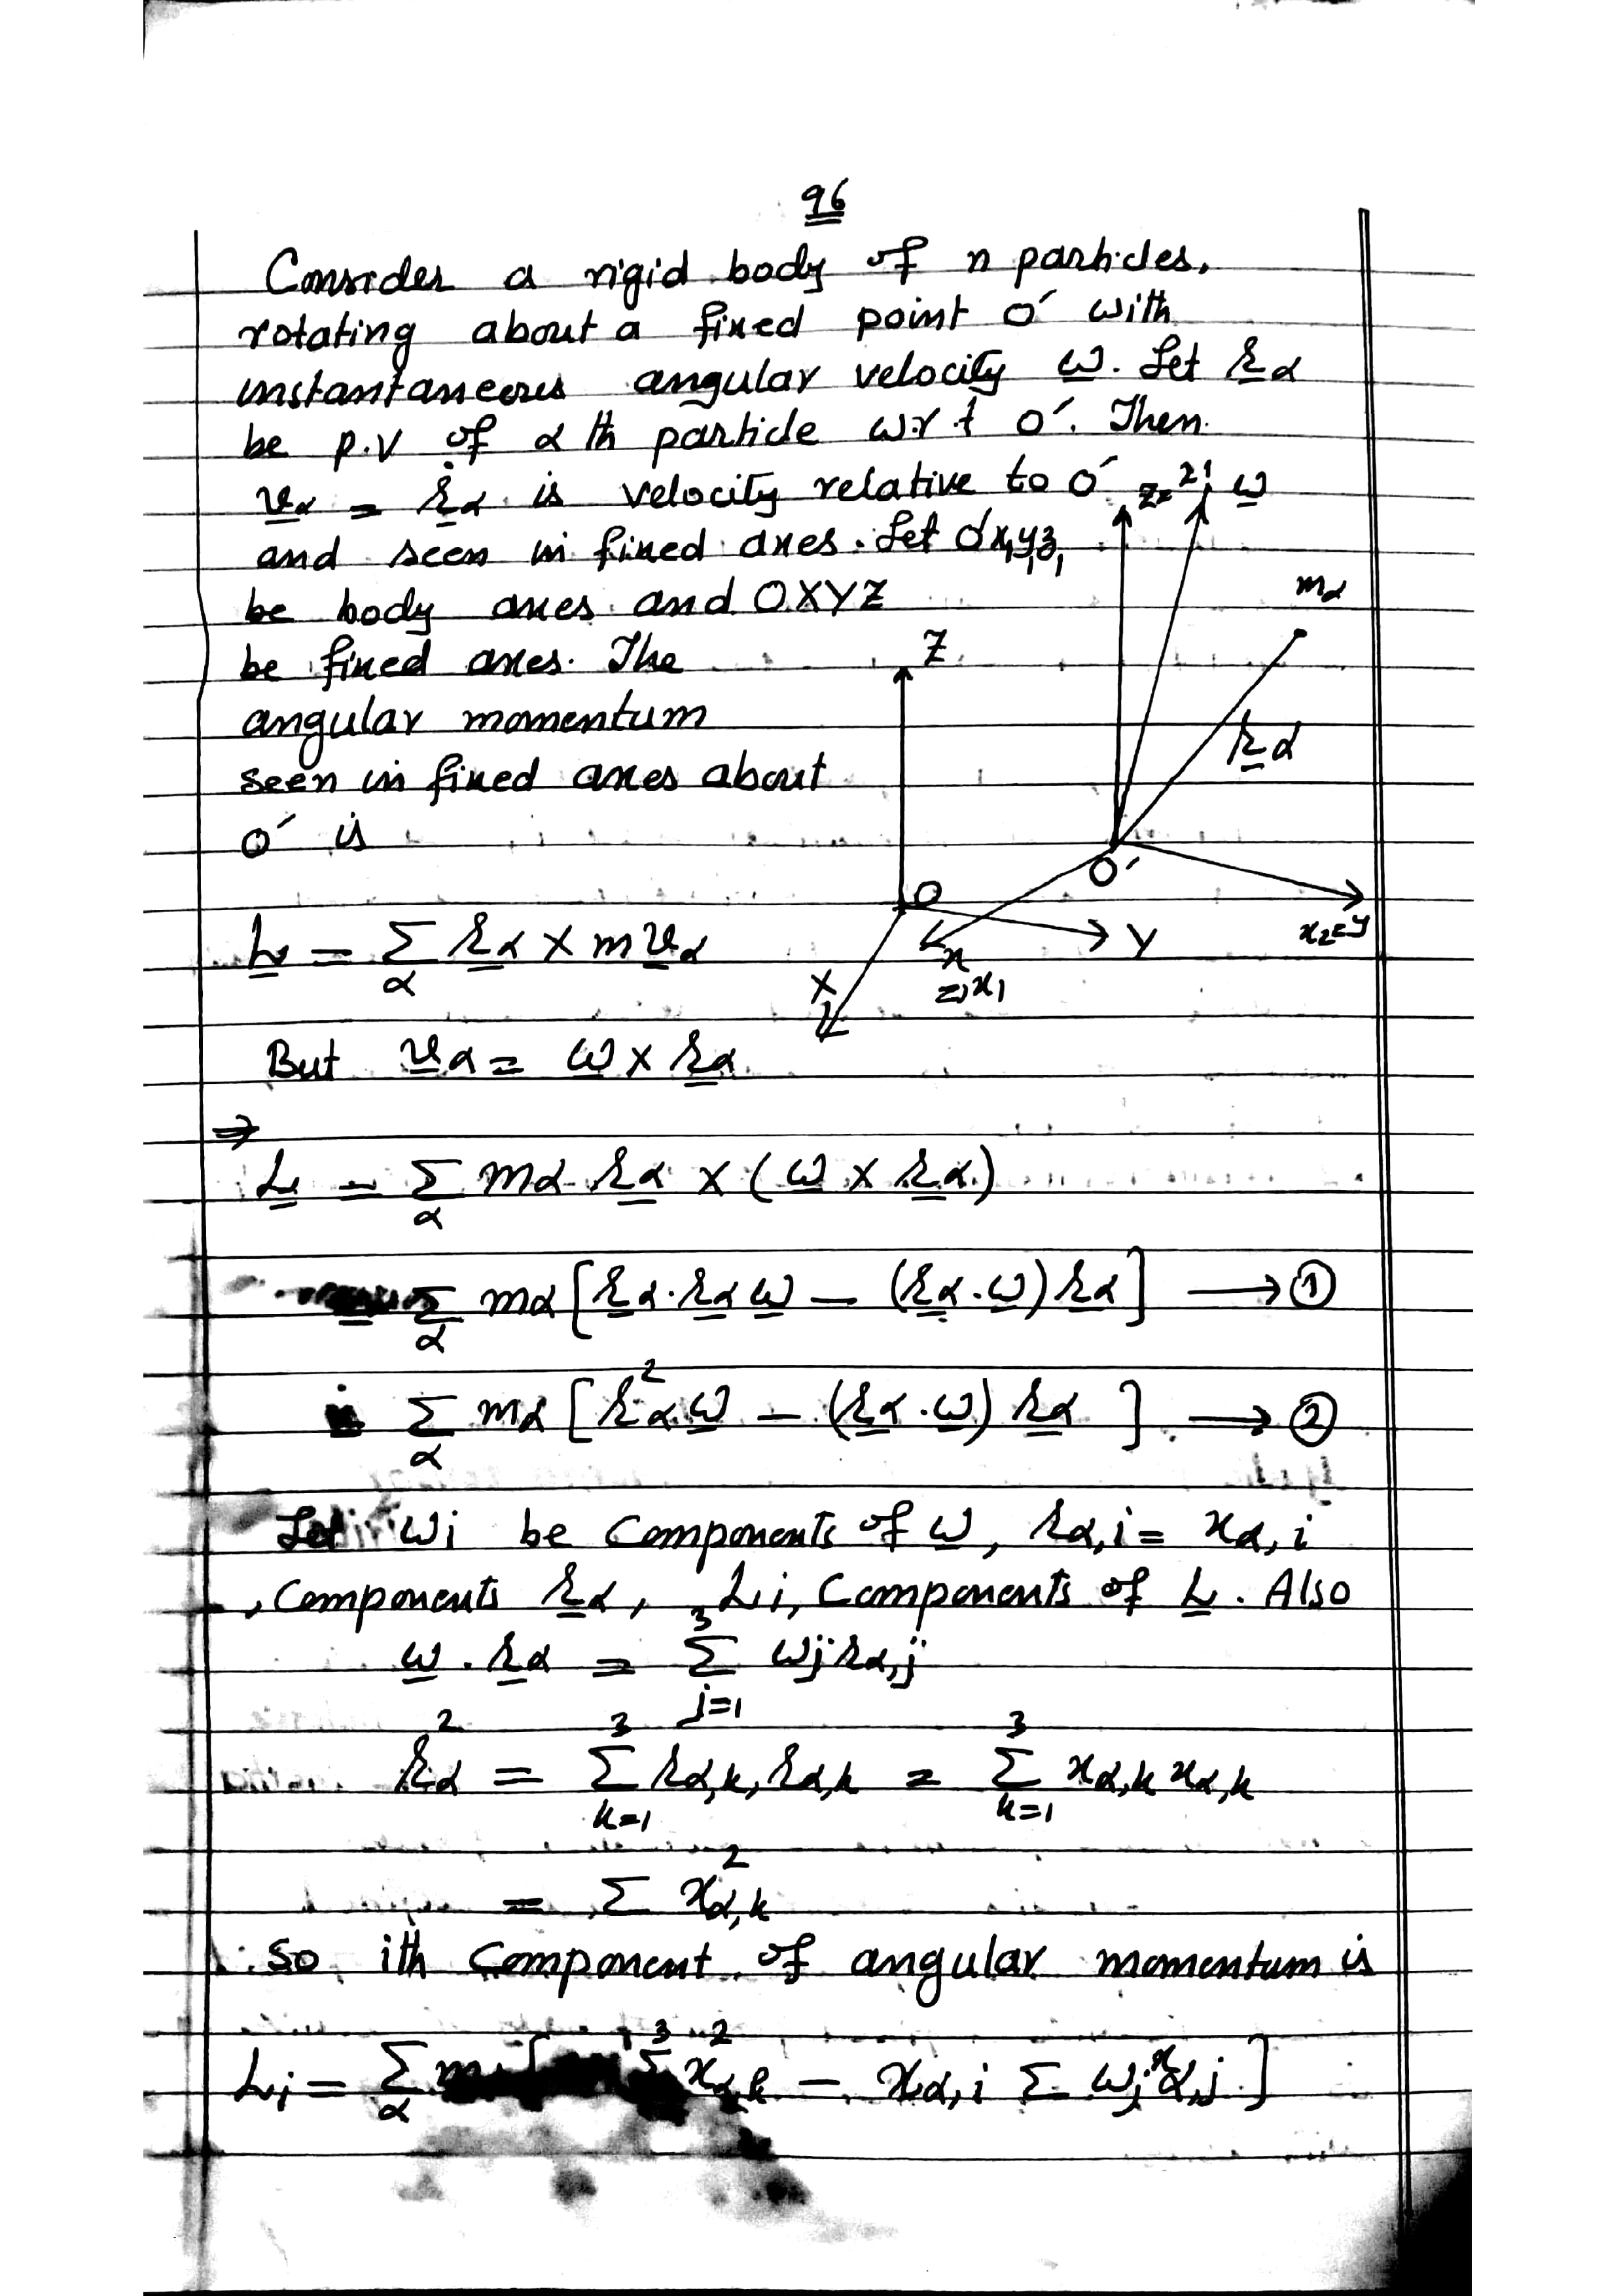 96
Consider a rigid body of n particles,
rotating about a fixed point O′ with
instantaneous angular velocity ω. Let rα
be p.v of α th particle w.r.t O′. Then
vα = ṙα is velocity relative to O′
and seen in fixed axes. Let O′x,y,z,
be body axes and OXYZ
be fixed axes. The
angular momentum
seen in fixed axes about
O′ is
ω
mα
Z
rα
O′
O
Y
X
L = Σα rα × m vα
But vα = ω × rα
⇒
L = Σα mα rα × (ω × rα)
Σα mα [rα·rα ω − (rα·ω) rα] → ①
= Σα mα [r²α ω − (rα·ω) rα] → ②
Let ωi be components of ω, rα,i = xα,i
, components rα, Li, Components of L. Also
ω·rα = Σ³j=1 ωj rα,j
r²α = Σ³k=1 rα,k, rα,k = Σ³k=1 xα,k xα,k
= Σ x²α,k
so ith component of angular momentum is
Li = Σα m [ Σ³ x²α,k − xα,i Σ ωj xα,j ]